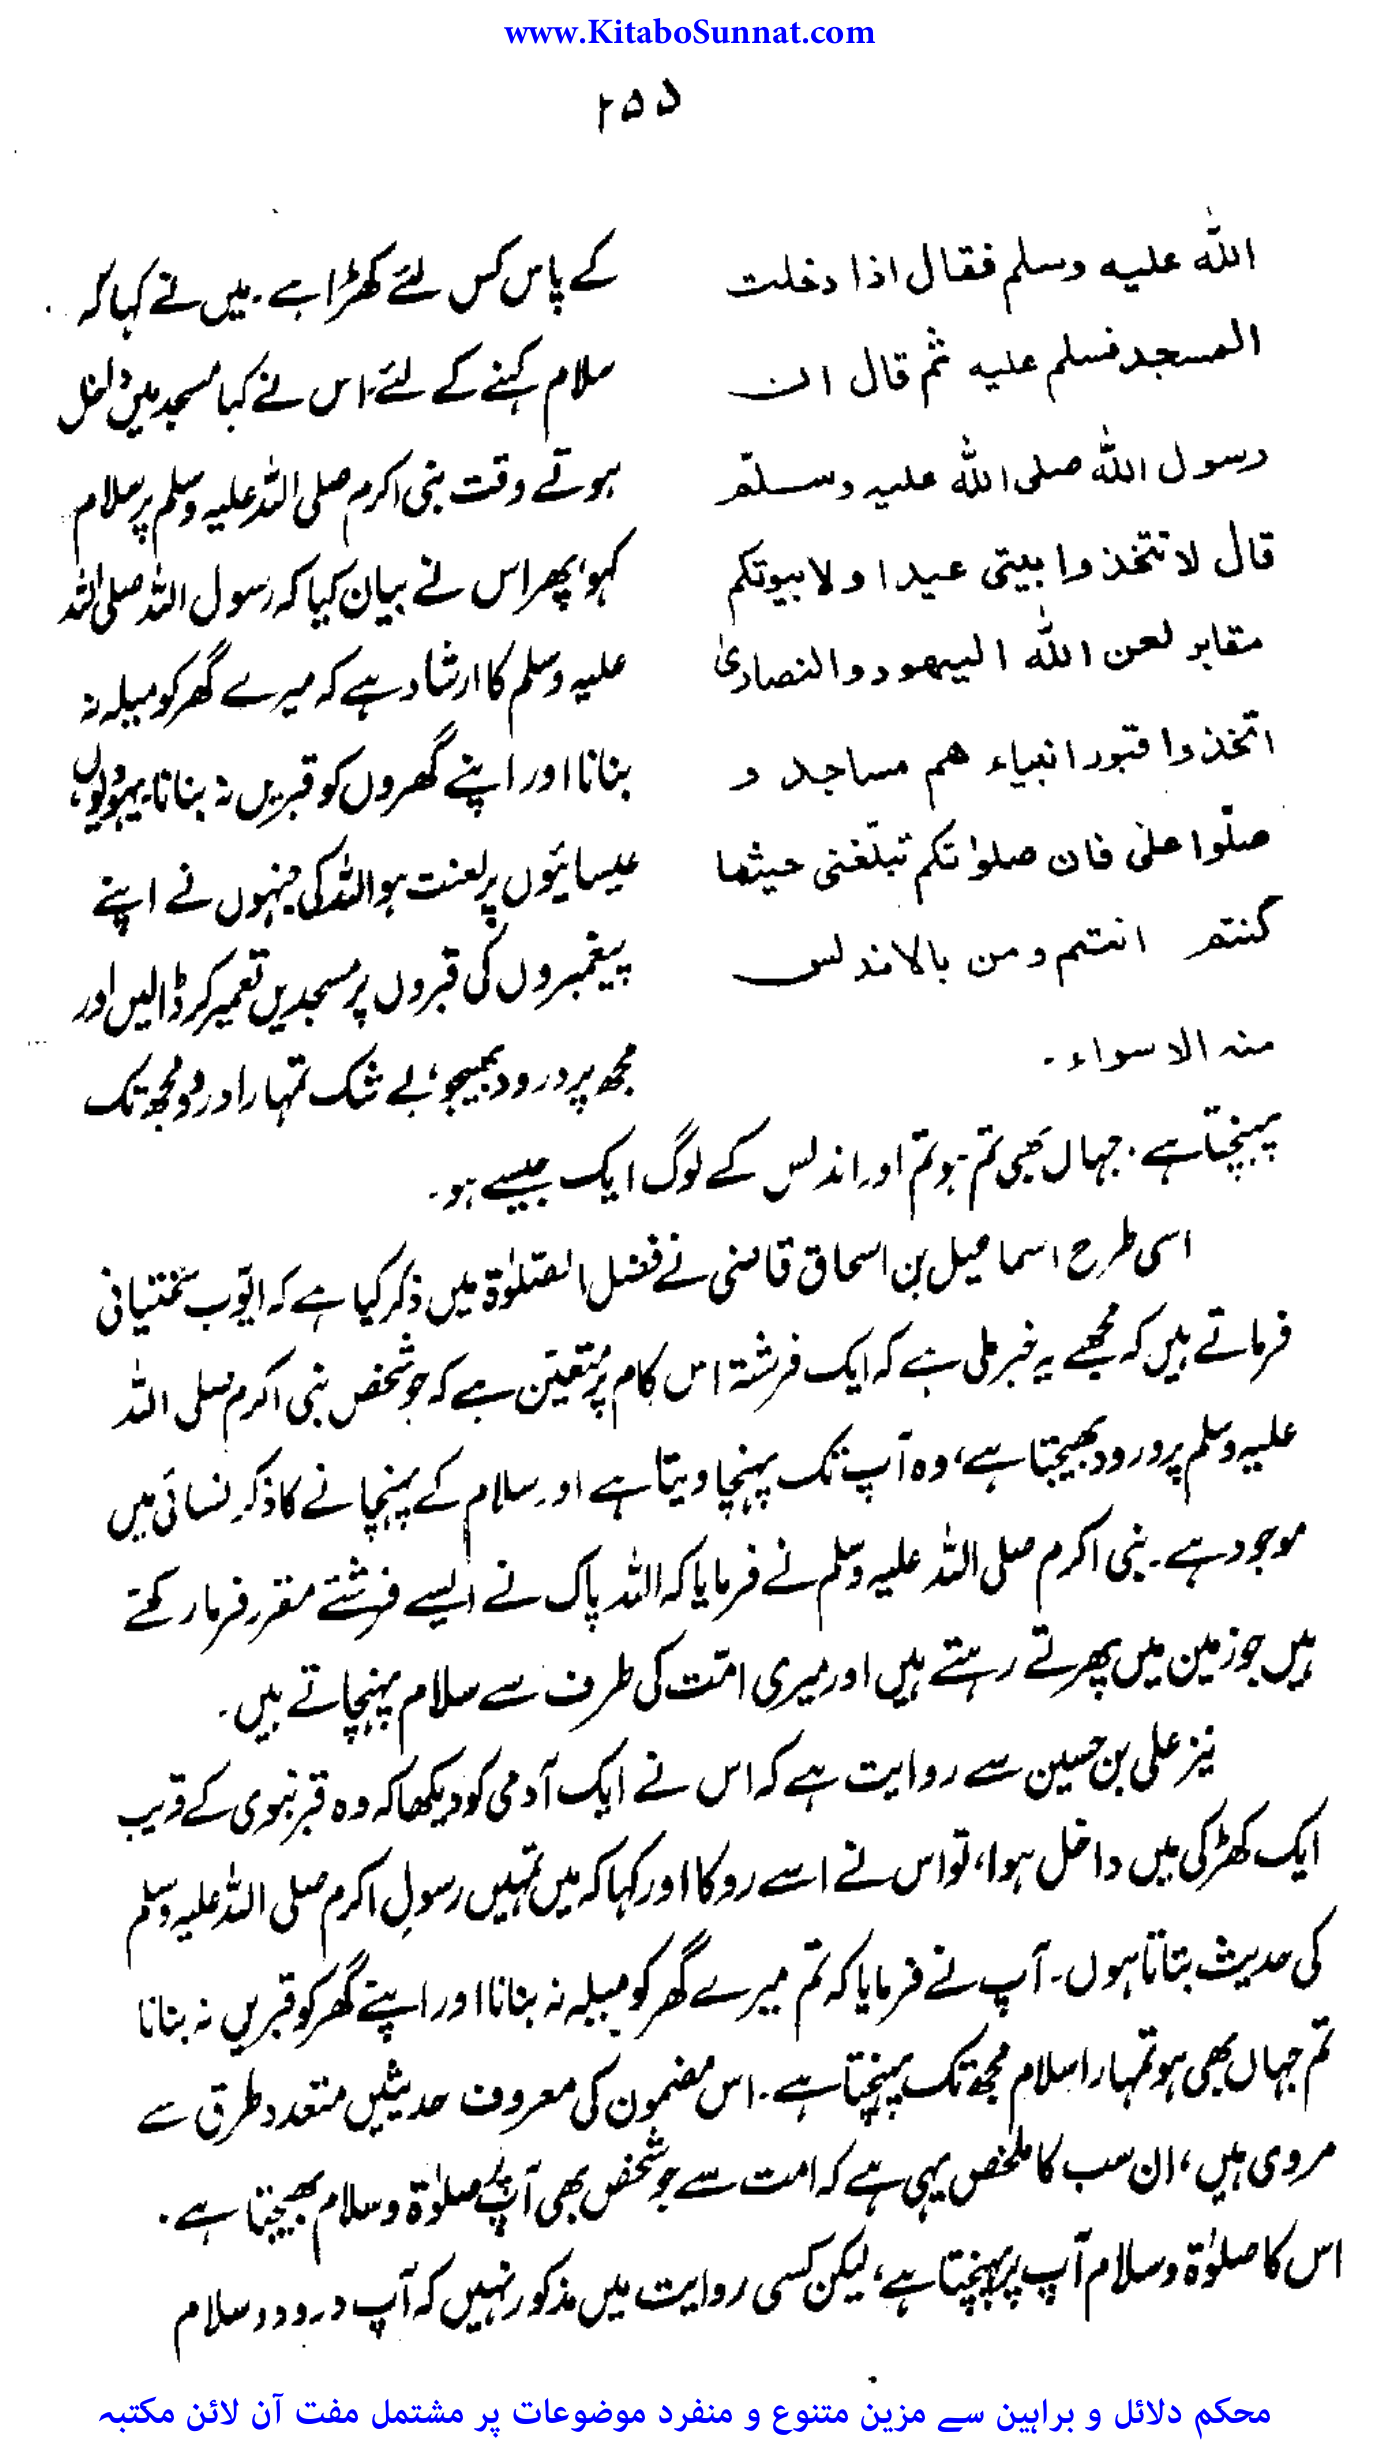 www.KitaboSunnat.com
۲۵۵
اللہ علیہ وسلم فقال اذا دخلت
المسجد فسلم علیہ ثم قال ان
رسول اللہ صلی اللہ علیہ وسلّم
قال لا تتخذوا بیتی عیدا ولا بیوتکم
مقابر لعن اللہ الیھود والنصاریٰ
اتخذوا قبور انبیاء ھم مساجد و
صلّوا علیٰ فان صلوٰتکم تبلّغنی حیثما
کنتم انتم ومن بالاندلس
منہ الا سواء۔
کے پاس کس لئے کھڑا ہے۔ میں نے کہا کہ
سلام کہنے کے لئے، اس نے کہا مسجد میں داخل
ہوتے وقت نبی اکرم صلی اللہ علیہ وسلم پر سلام
کہو، پھر اس نے بیان کیا کہ رسول اللہ صلی اللہ
علیہ وسلم کا ارشاد ہے کہ میرے گھر کو میلہ نہ
بنانا اور اپنے گھروں کو قبریں نہ بنانا۔ یہودیوں،
عیسائیوں پر لعنت ہو اللہ کی جنہوں نے اپنے
پیغمبروں کی قبروں پر مسجدیں تعمیر کر ڈالیں اور
مجھ پر درود بھیجو، بے شک تمہارا درود مجھ تک
پہنچتا ہے۔ جہاں بھی تم ہو تم اور اندلس کے لوگ ایک جیسے ہو۔
اسی طرح اسماعیل بن اسحاق قاضی نے فضل الصّلوٰۃ میں ذکر کیا ہے کہ ایّوب سختیانی
فرماتے ہیں کہ مجھے یہ خبر ملی ہے کہ ایک فرشتہ اس کام پر متعیّن ہے کہ جو شخص نبی اکرم صلی اللہ
علیہ وسلم پر درود بھیجتا ہے، وہ آپ تک پہنچا دیتا ہے اور سلام کے پہنچانے کا ذکر نسائی میں
موجود ہے۔ نبی اکرم صلی اللہ علیہ وسلم نے فرمایا کہ اللہ پاک نے ایسے فرشتے مقرر فرما رکھے
ہیں جو زمین میں پھرتے رہتے ہیں اور میری امّت کی طرف سے سلام پہنچاتے ہیں۔
نیز علی بن حسین سے روایت ہے کہ اس نے ایک آدمی کو دیکھا کہ وہ قبر نبوی کے قریب
ایک کھڑکی میں داخل ہوا، تو اس نے اسے روکا اور کہا کہ میں تمہیں رسولِ اکرم صلی اللہ علیہ وسلم
کی حدیث بتاتا ہوں۔ آپ نے فرمایا کہ تم میرے گھر کو میلہ نہ بنانا اور اپنے گھر کو قبریں نہ بنانا
تم جہاں بھی ہو تمہارا سلام مجھ تک پہنچتا ہے۔ اس مضمون کی معروف حدیثیں متعدد طرق سے
مروی ہیں، ان سب کا ملخص یہی ہے کہ امت سے جو شخص بھی آپ پر صلوٰۃ و سلام بھیجتا ہے۔
اس کا صلوٰۃ و سلام آپ پر پہنچتا ہے، لیکن کسی روایت میں مذکور نہیں کہ آپ درود و سلام
محکم دلائل و براہین سے مزین متنوع و منفرد موضوعات پر مشتمل مفت آن لائن مکتبہ